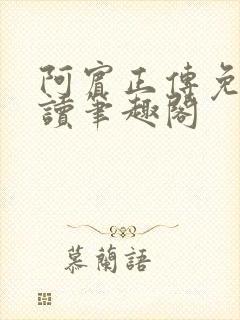 阿賓正傳免
讀筆趣閣
慕蘭語